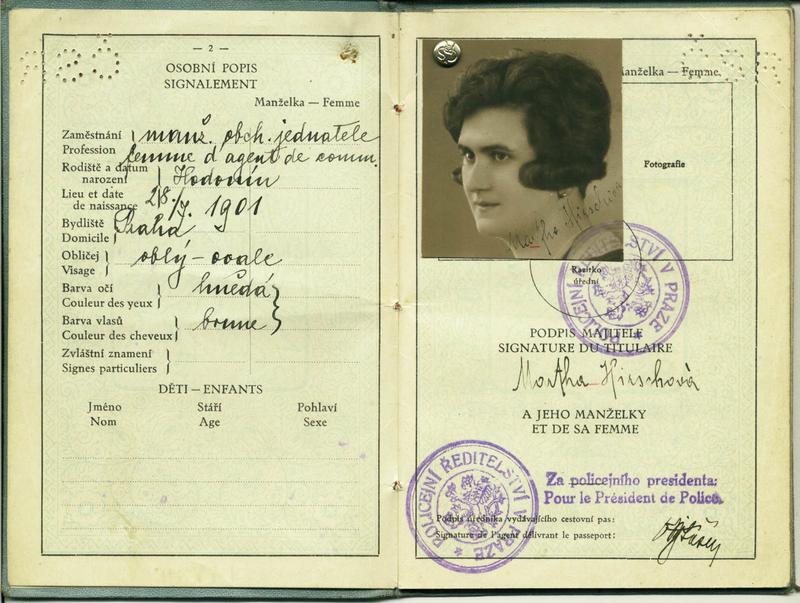 — 2 —
OSOBNÍ POPIS
SIGNALEMENT
Manželka — Femme
Zaměstnání manž. obch. jednatele
Profession femme d'agent de comm.
Rodiště a datum
narození Hodonín
Lieu et date
de naissance 1901
Bydliště Praha
Domicile
Obličej oblý – ovale
Visage
Barva očí hnědá
Couleur des yeux
Barva vlasů brune
Couleur des cheveux
Zvláštní znamení
Signes particuliers
DĚTI — ENFANTS
Jméno Stáří Pohlaví
Nom Age Sexe
Manželka — Femme.
Fotografie
Martha Hirschová
Razítko
úřední
POLICEJNÍ ŘEDITELSTVÍ V PRAZE
PODPIS MAJITELE
SIGNATURE DU TITULAIRE
Martha Hirschová
A JEHO MANŽELKY
ET DE SA FEMME
POLICEJNÍ ŘEDITELSTVÍ V PRAZE
Za policejního presidenta:
Pour le Président de Police.
Podpis úředníka vydávajícího cestovní pas:
Signature de l'agent délivrant le passeport: